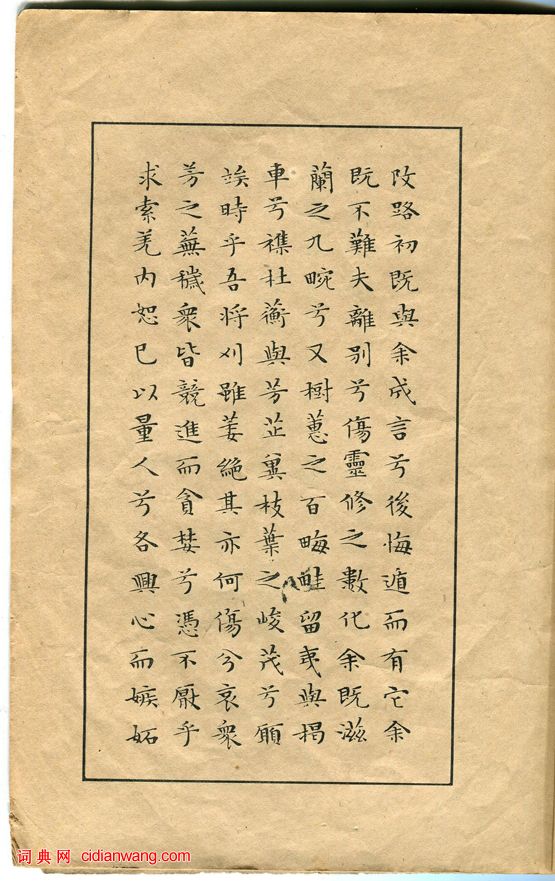 改路初既與余成言兮後悔遁而有它余
既不難夫離別兮傷靈修之數化余既滋
蘭之九畹兮又樹蕙之百畮畦留夷與揭
車兮襍杜蘅與芳芷冀枝葉之峻茂兮願
竢時乎吾將刈雖萎絕其亦何傷兮哀衆
芳之蕪穢衆皆競進而貪婪兮憑不厭乎
求索羌內恕已以量人兮各興心而嫉妬
词典网 cidianwang.com